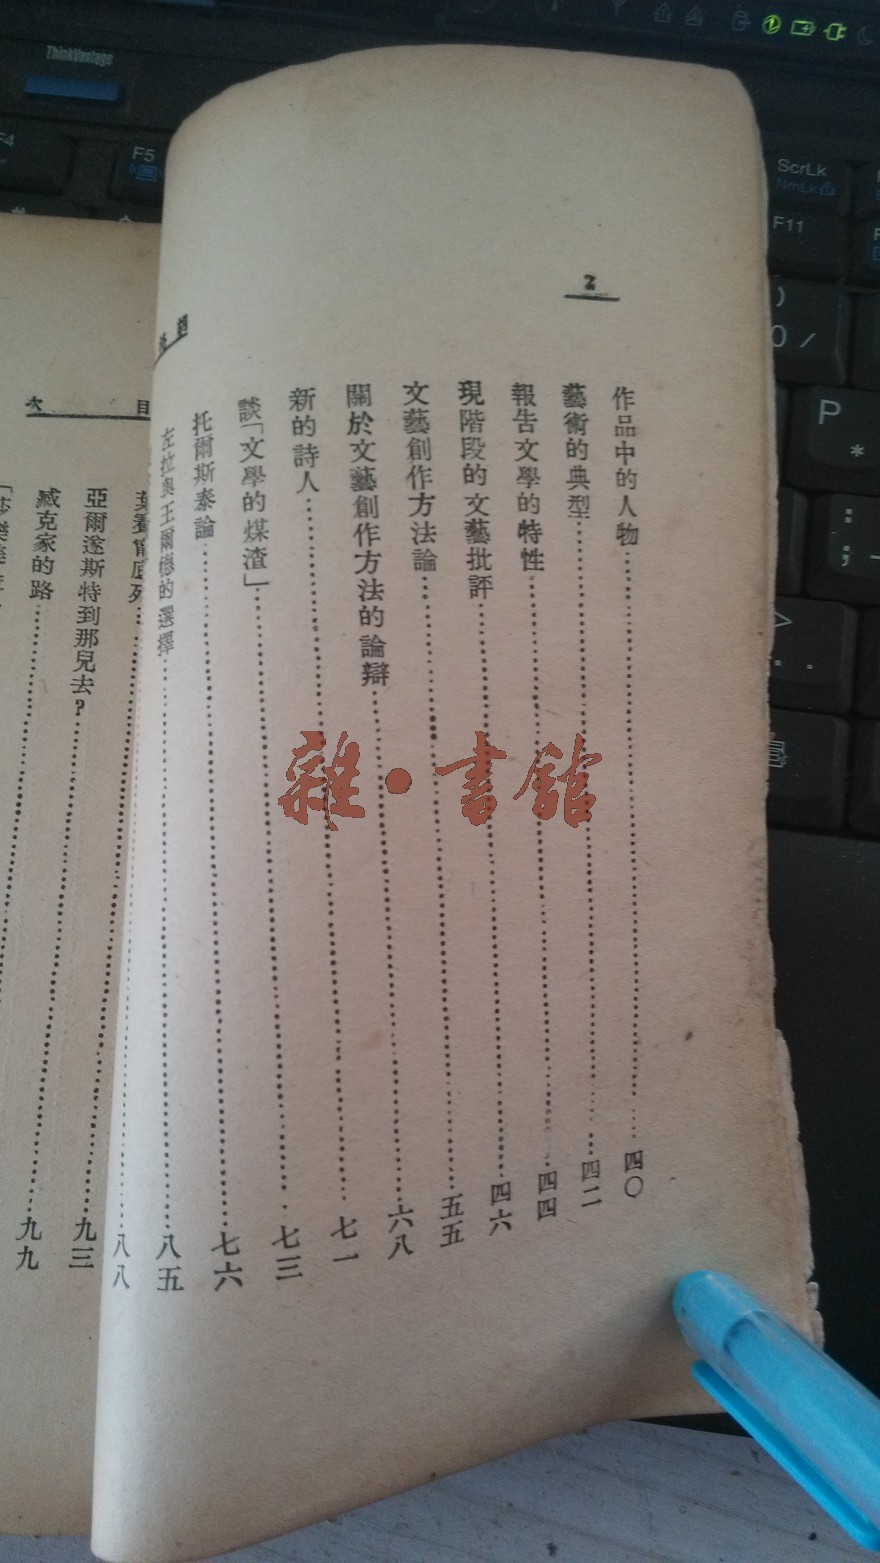 2
作品中的人物 四〇
藝術的典型 四二
報告文學的特性 四四
現階段的文藝批評 四六
文藝創作方法論 五五
關於文藝創作方法的論辯 六八
新的詩人 七一
談「文學的煤渣」 七三
托爾斯泰論 七六
左拉與王爾德的選擇 八五
八八
目次
亞爾邊斯特到那兒去? 九三
臧克家的路 九九
雜·書館
ThinkVantage
F4
F5
ScrLk
NmLk
F11
)
0 /
P
*
:
;